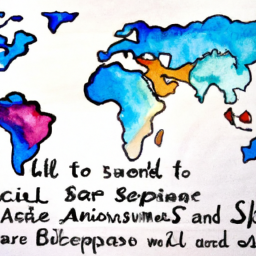 LLl to soond to
ciCLL Sar Sepinne
ACie AnionsumneS and Sk
are Bukeppaso woll aod s